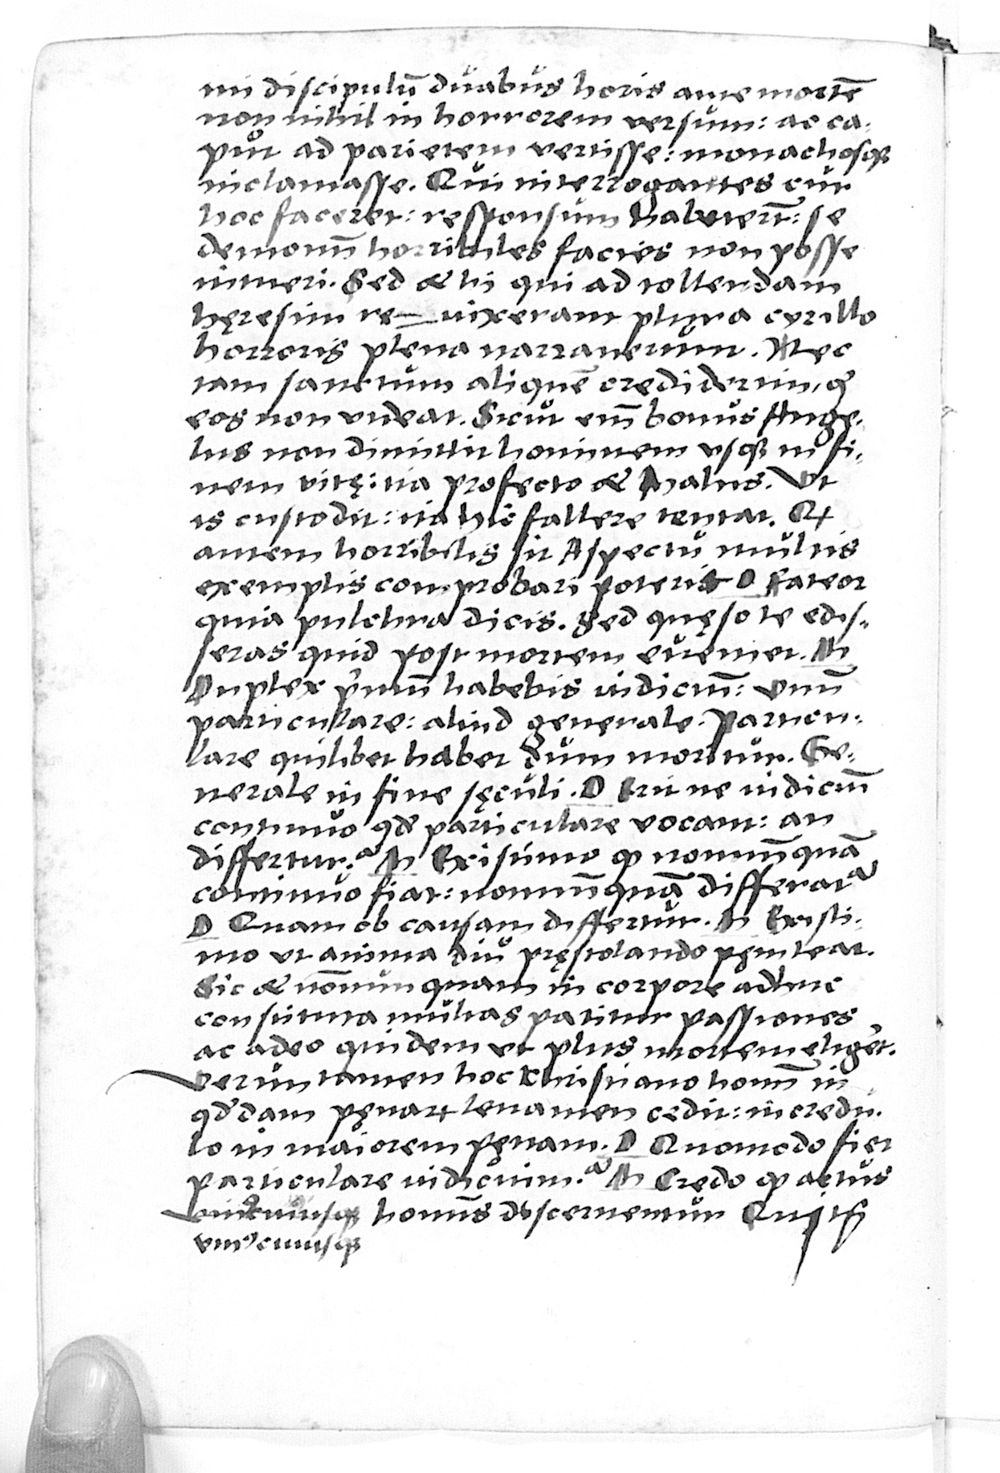 mi discipulũ duabus horis ante mortẽ
non nihil in horrorem versum: ac ca-
put ad parietem vertisse: monachosqꝫ
inclamasse. Qui interrogantes cur
hoc faceret: responsum habuerũt: se
demonũ horribiles facies non posse
intueri. Sed & hi qui ad tollendam
hęresim re— vixerant plura cyrillo
horroris plena narrauerunt. Nec
tam sanctum aliquẽ crediderim, qͥ
eos non videat. Sicut enĩ bonus Ange-
lus non dimittit hominem vsqꝫ in fi-
nem vitę: ita profecto & Malus. Vt
is custodit: ita hic fallere tentat. Qꝙ
autem horribilis sit Aspectu multis
exemplis comprobari poterit D Fateor
quia pulchra dicis. Sed quęso te edis-
seras quid post mortem eueniet. M
Duplex pͥmũ habebis iudiciũ: vnũ
particulare: aliud generale. Particu-
lare quilibet habet dum moritur. Ge-
nerale in fine sęculi. D Erit ne iudiciũ
continuo qḋ particulare vocant: an
differtur? M Existimo ꝙ nonnũquã
continuo fiat: nonnũquã differat
D Quam ob causam differtur. M Existi-
mo vt anima diu pręstolando pęniteat.
Sic & nõnunquam in corpore adhuc
constituta multas patitur passiones
ac adeo quidem vt plus mortem eligeret.
Veruntamen hoc Christiano homĩ in
qḋdam pęnaꝝ leuamen cedit: incredu-
lo in maiorem pęnam. D Quomodo fiet
particulare iudicium? M Credo ꝙ actus
homĩs discernentur
vniꝰcuiusqꝫ